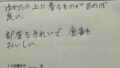 ゆかたの上に着るものがあれば
良い。
部屋もきれいで、食事も
おいしい。